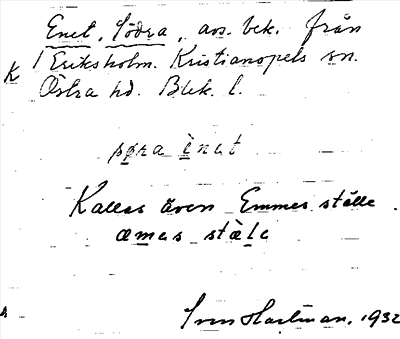 Enet, Södra, avs. bek. från
K 1 Eriksholm. Kristianopels sn.
Östra hd. Blek. l.
søra ènet
Kallas även Emmes ställe.
æmes stæ̀le
Sven Hartman, 1932